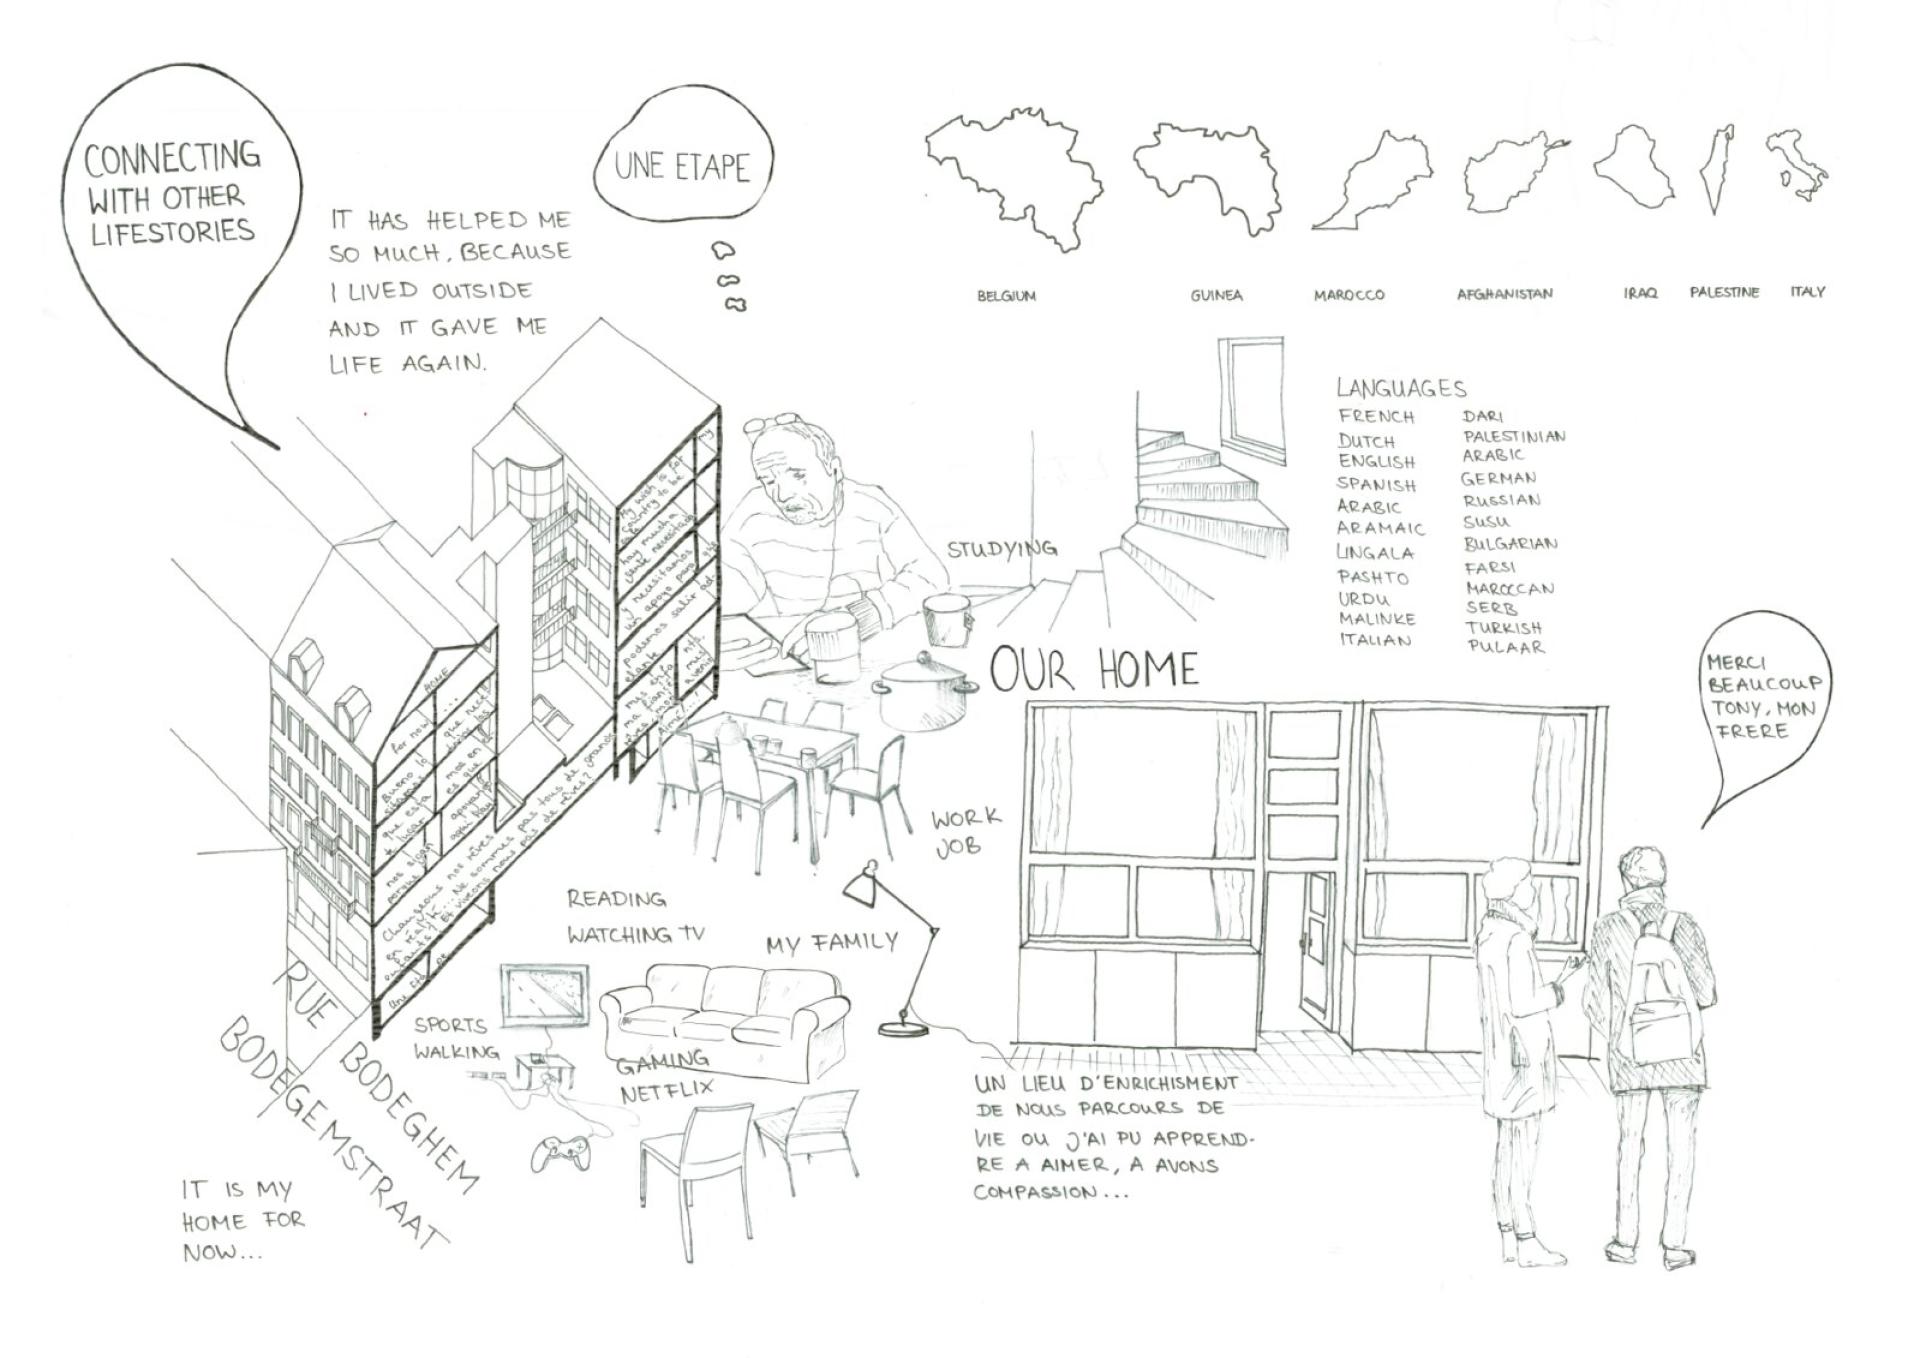 CONNECTING
WITH OTHER
LIFESTORIES
IT HAS HELPED ME
SO MUCH, BECAUSE
I LIVED OUTSIDE
AND IT GAVE ME
LIFE AGAIN.
UNE ETAPE
BELGIUM
GUINEA
MAROCCO
AFGHANISTAN
IRAQ
PALESTINE
ITALY
LANGUAGES
FRENCH
DUTCH
ENGLISH
SPANISH
ARABIC
ARAMAIC
LINGALA
PASHTO
URDU
MALINKE
ITALIAN
DARI
PALESTINIAN
ARABIC
GERMAN
RUSSIAN
SUSU
BULGARIAN
FARSI
MAROCCAN
SERB
TURKISH
PULAAR
my
My wish is for
country to be
hay mucha
gente necesitada
y necesitamos
un apoyo para que
podamos salir ad-
elante
STUDYING
OUR HOME
MERCI
BEAUCOUP
TONY, MON
FRERE
for now
Bueno lo
que esta
lugar
que nece
es que
apoyan
aqui hay
Changeons nos rêves
en réalité... Ne sommes pas tous de grands
enfants? Et vivons nous pas de rêves?
Une etape
WORK
JOB
READING
WATCHING TV
MY FAMILY
SPORTS
WALKING
GAMING
NETFLIX
RUE
BODEGHEM
BODEGEMSTRAAT
IT IS MY
HOME FOR
NOW...
UN LIEU D'ENRICHISMENT
DE NOUS PARCOURS DE
VIE OU J'AI PU APPREND-
RE A AIMER, A AVONS
COMPASSION...